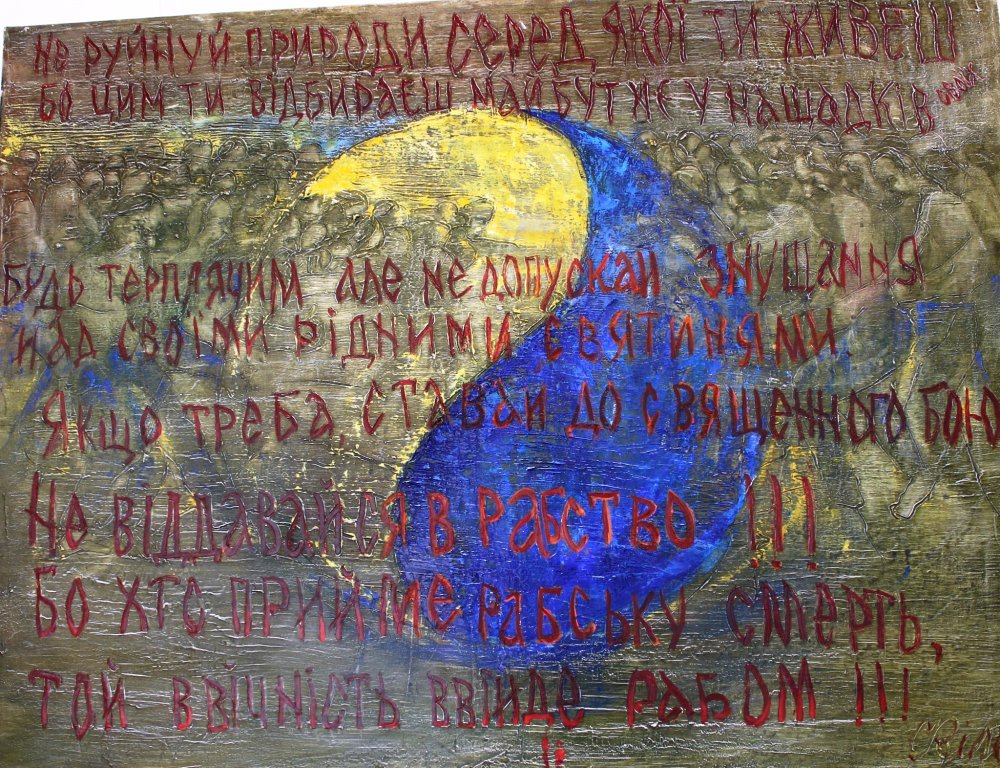 Не руйнуй природи серед якої ти живеш
бо цим ти відбираєш майбутнє у нащадків
Будь терплячим але не допускай знущання
над своїми рідними святинями.
Якщо треба, ставай до священного бою
Не віддавайся в рабство !!!
Бо хто прийме рабську смерть,
той в вічність ввійде рабом !!!